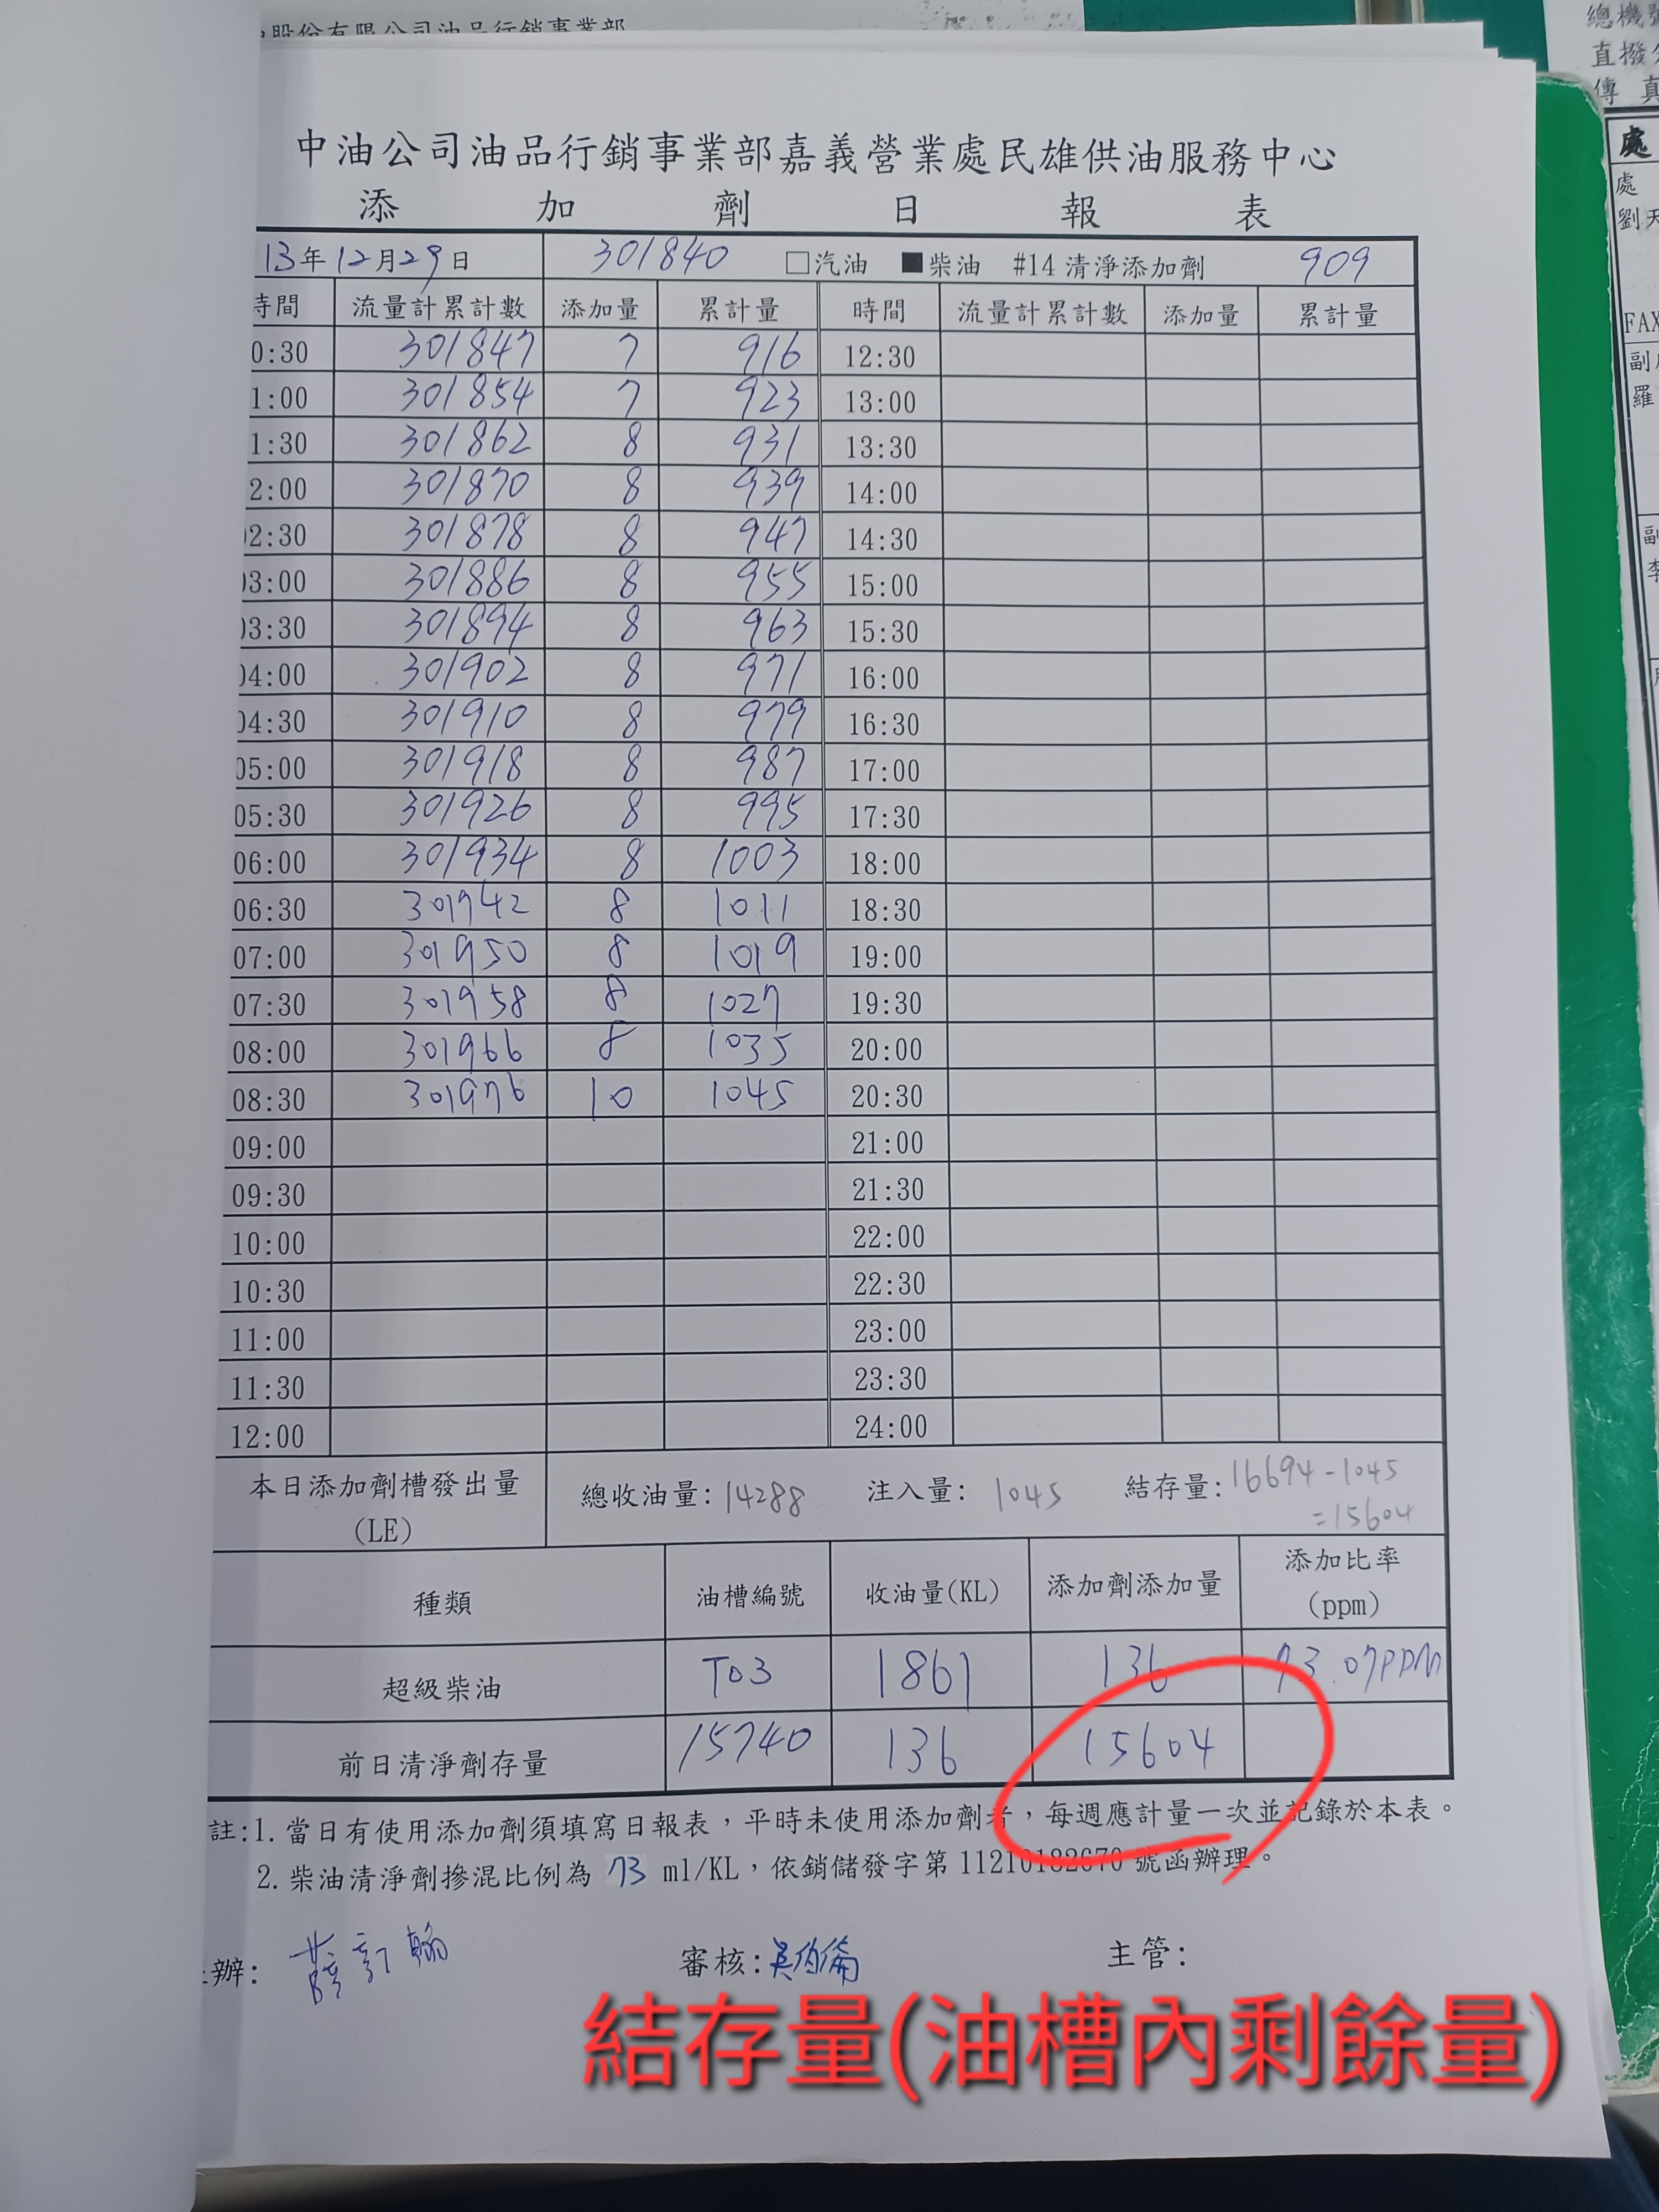 股份有限公司油品行銷事業部
總機號
直撥
傳 真
處
處
劉天
FAX
副
羅
副
李
中油公司油品行銷事業部嘉義營業處民雄供油服務中心
添 加 劑 日 報 表
13年12月29日 301840 □汽油 ■柴油 #14清淨添加劑 909
時間 流量計累計數 添加量 累計量 時間 流量計累計數 添加量 累計量
0:30 301847 7 916 12:30
1:00 301854 7 923 13:00
1:30 301862 8 931 13:30
2:00 301870 8 939 14:00
2:30 301878 8 947 14:30
03:00 301886 8 955 15:00
03:30 301894 8 963 15:30
04:00 301902 8 971 16:00
04:30 301910 8 979 16:30
05:00 301918 8 987 17:00
05:30 301926 8 995 17:30
06:00 301934 8 1003 18:00
06:30 301942 8 1011 18:30
07:00 301950 8 1019 19:00
07:30 301958 8 1027 19:30
08:00 301966 8 1035 20:00
08:30 301976 10 1045 20:30
09:00 21:00
09:30 21:30
10:00 22:00
10:30 22:30
11:00 23:00
11:30 23:30
12:00 24:00
本日添加劑槽發出量 總收油量:14288 注入量: 1045 結存量:16694-1045
(LE) =15604
種類 油槽編號 收油量(KL) 添加劑添加量 添加比率
(ppm)
超級柴油 T03 1861 136 73.07PPM
前日清淨劑存量 15740 136 15604
註:1.當日有使用添加劑須填寫日報表，平時未使用添加劑者，每週應計量一次並記錄於本表。
2.柴油清淨劑摻混比例為 73 ml/KL，依銷儲發字第11210182670號函辦理。
辦: 審核:吳伯倫 主管:
結存量(油槽內剩餘量)